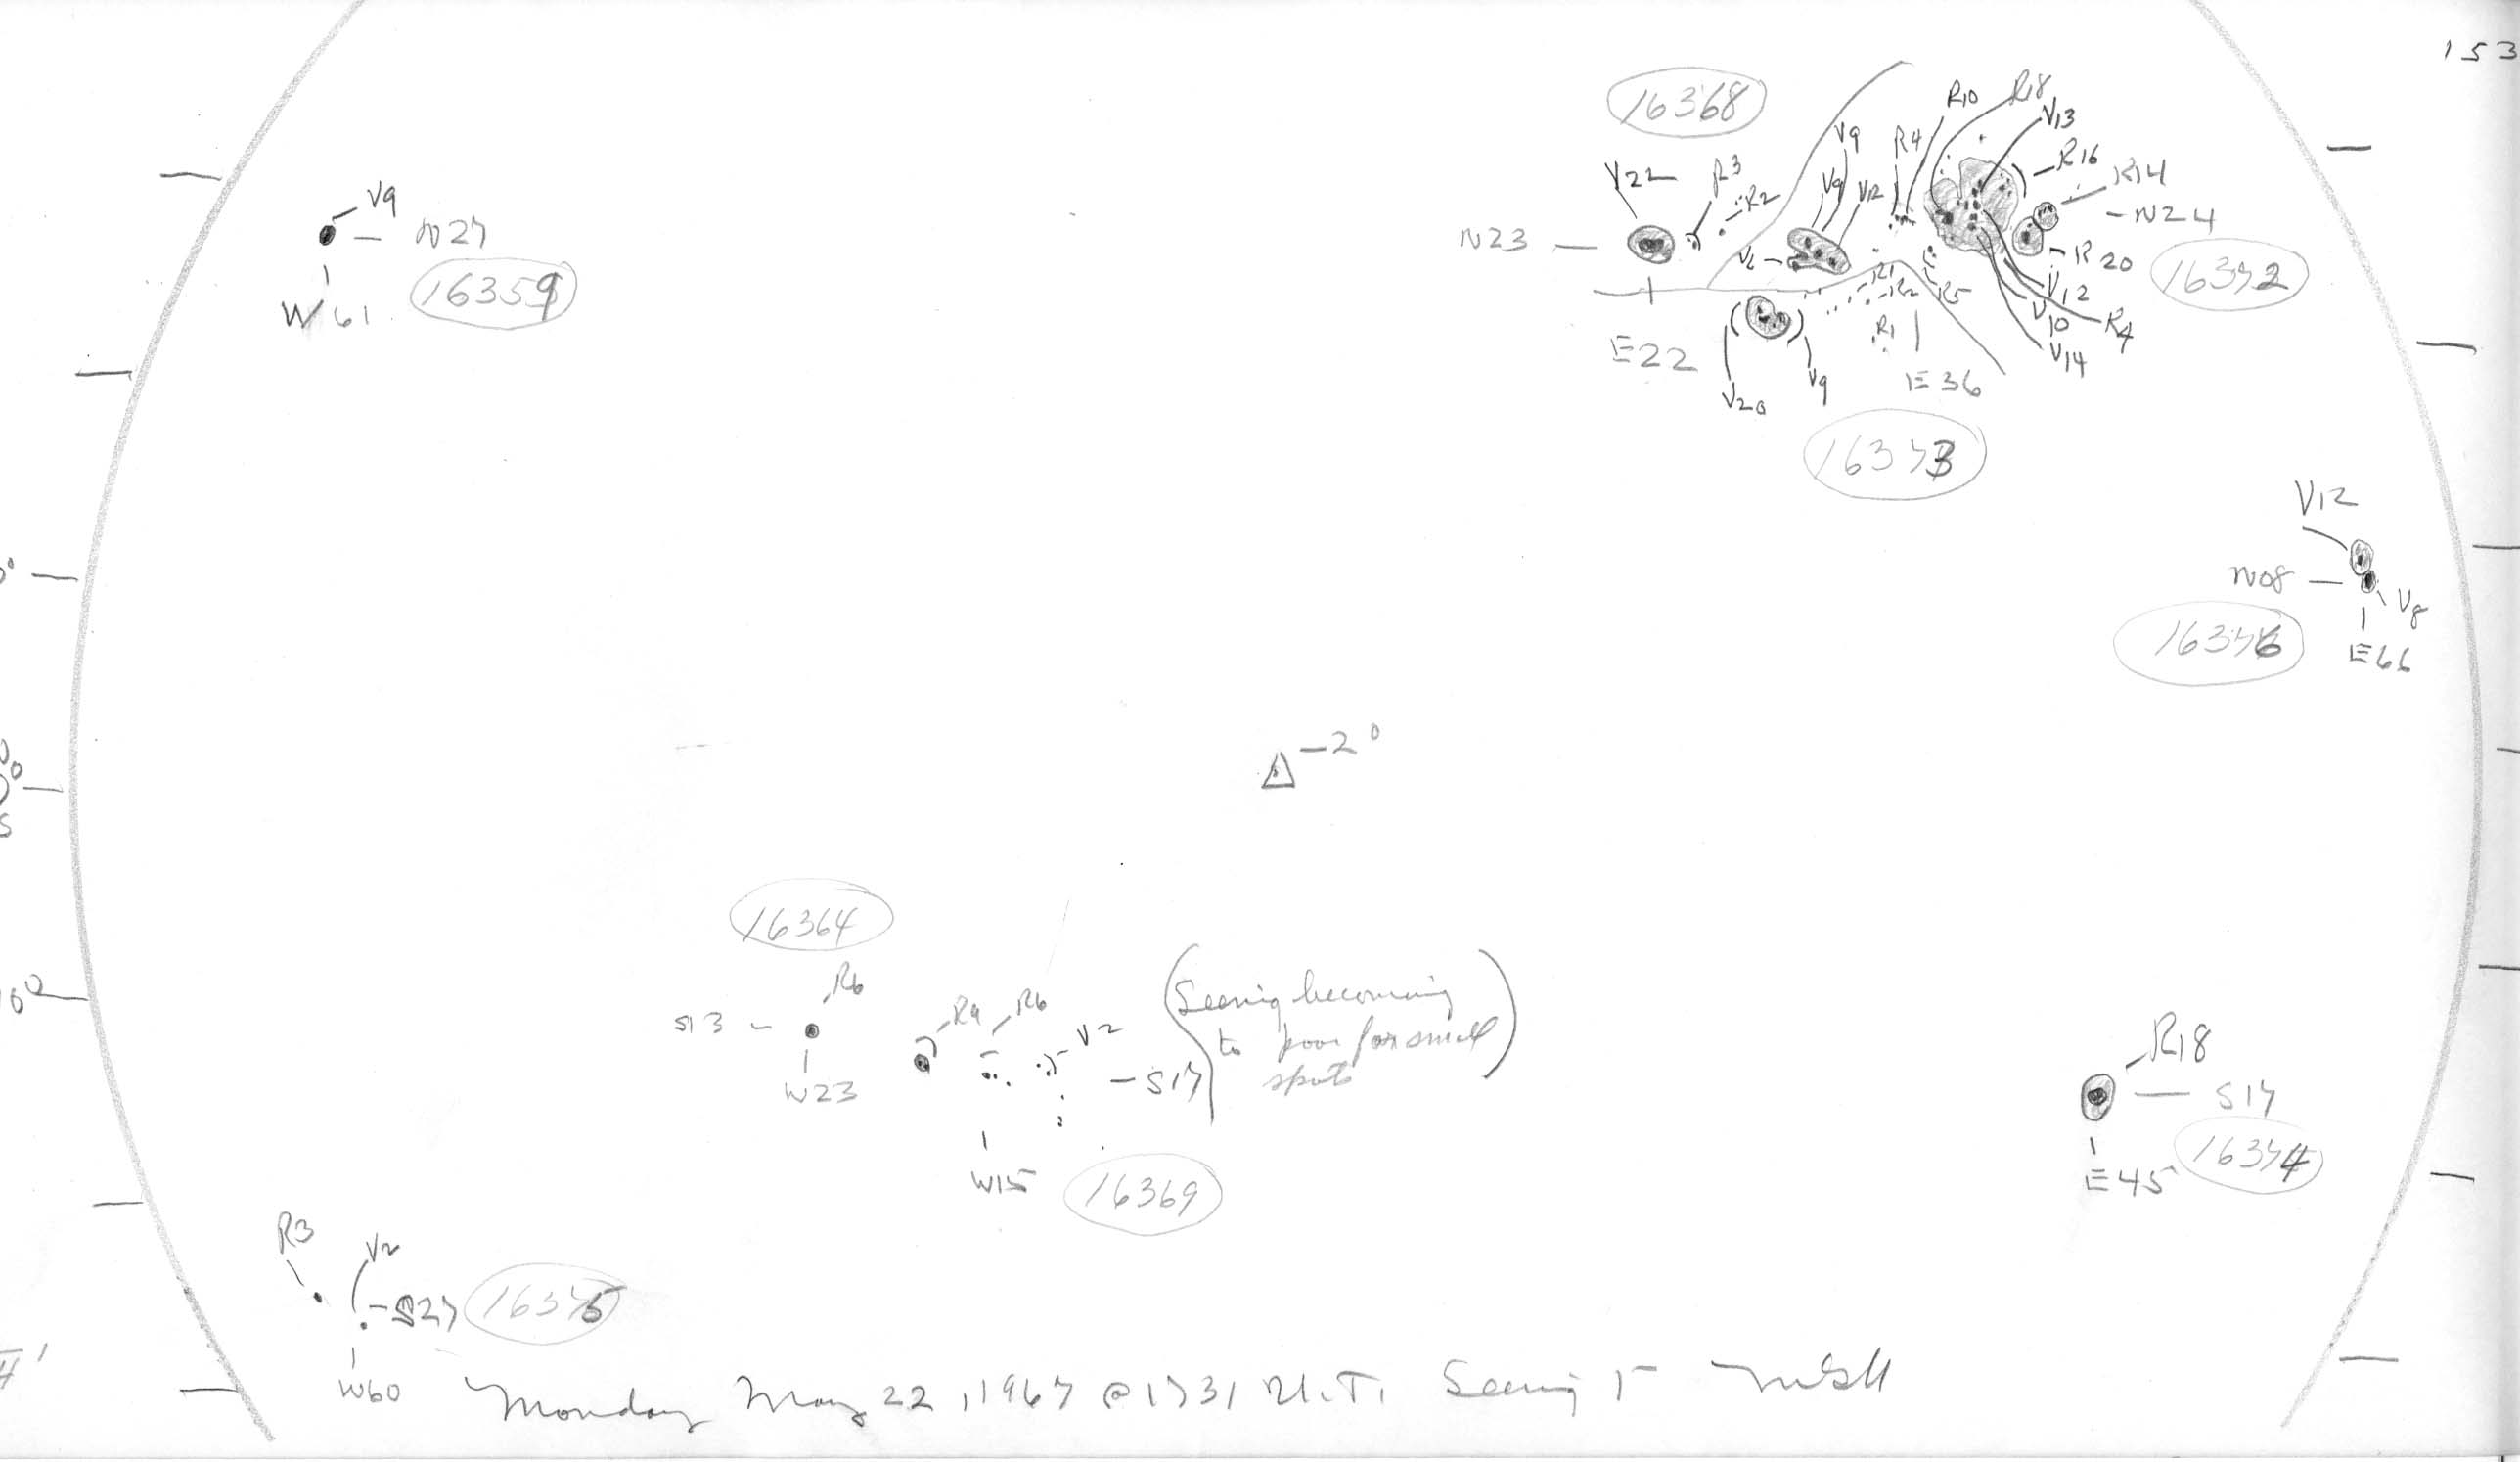 153
16368
R10 R18
V13
V9 R4
R16
V22 R3 R2
V9 V12
R14
N24
V9
N27
N23
V6
R1
R20
16359
W61
R2 R5
V12
16372
R1
V10 R4
E22
V14
E36
V20 V9
16373
V12
N08
V8
16376
E66
-2°
16364
R6
(Seeing becoming
R9 R6
S13
V2
to poor for small
S17
spots)
W23
R18
S17
W15
16369
16374
E45
R3
V2
S27
16375
W60
Monday May 22, 1967 @ 1731 U.T. Seeing 5